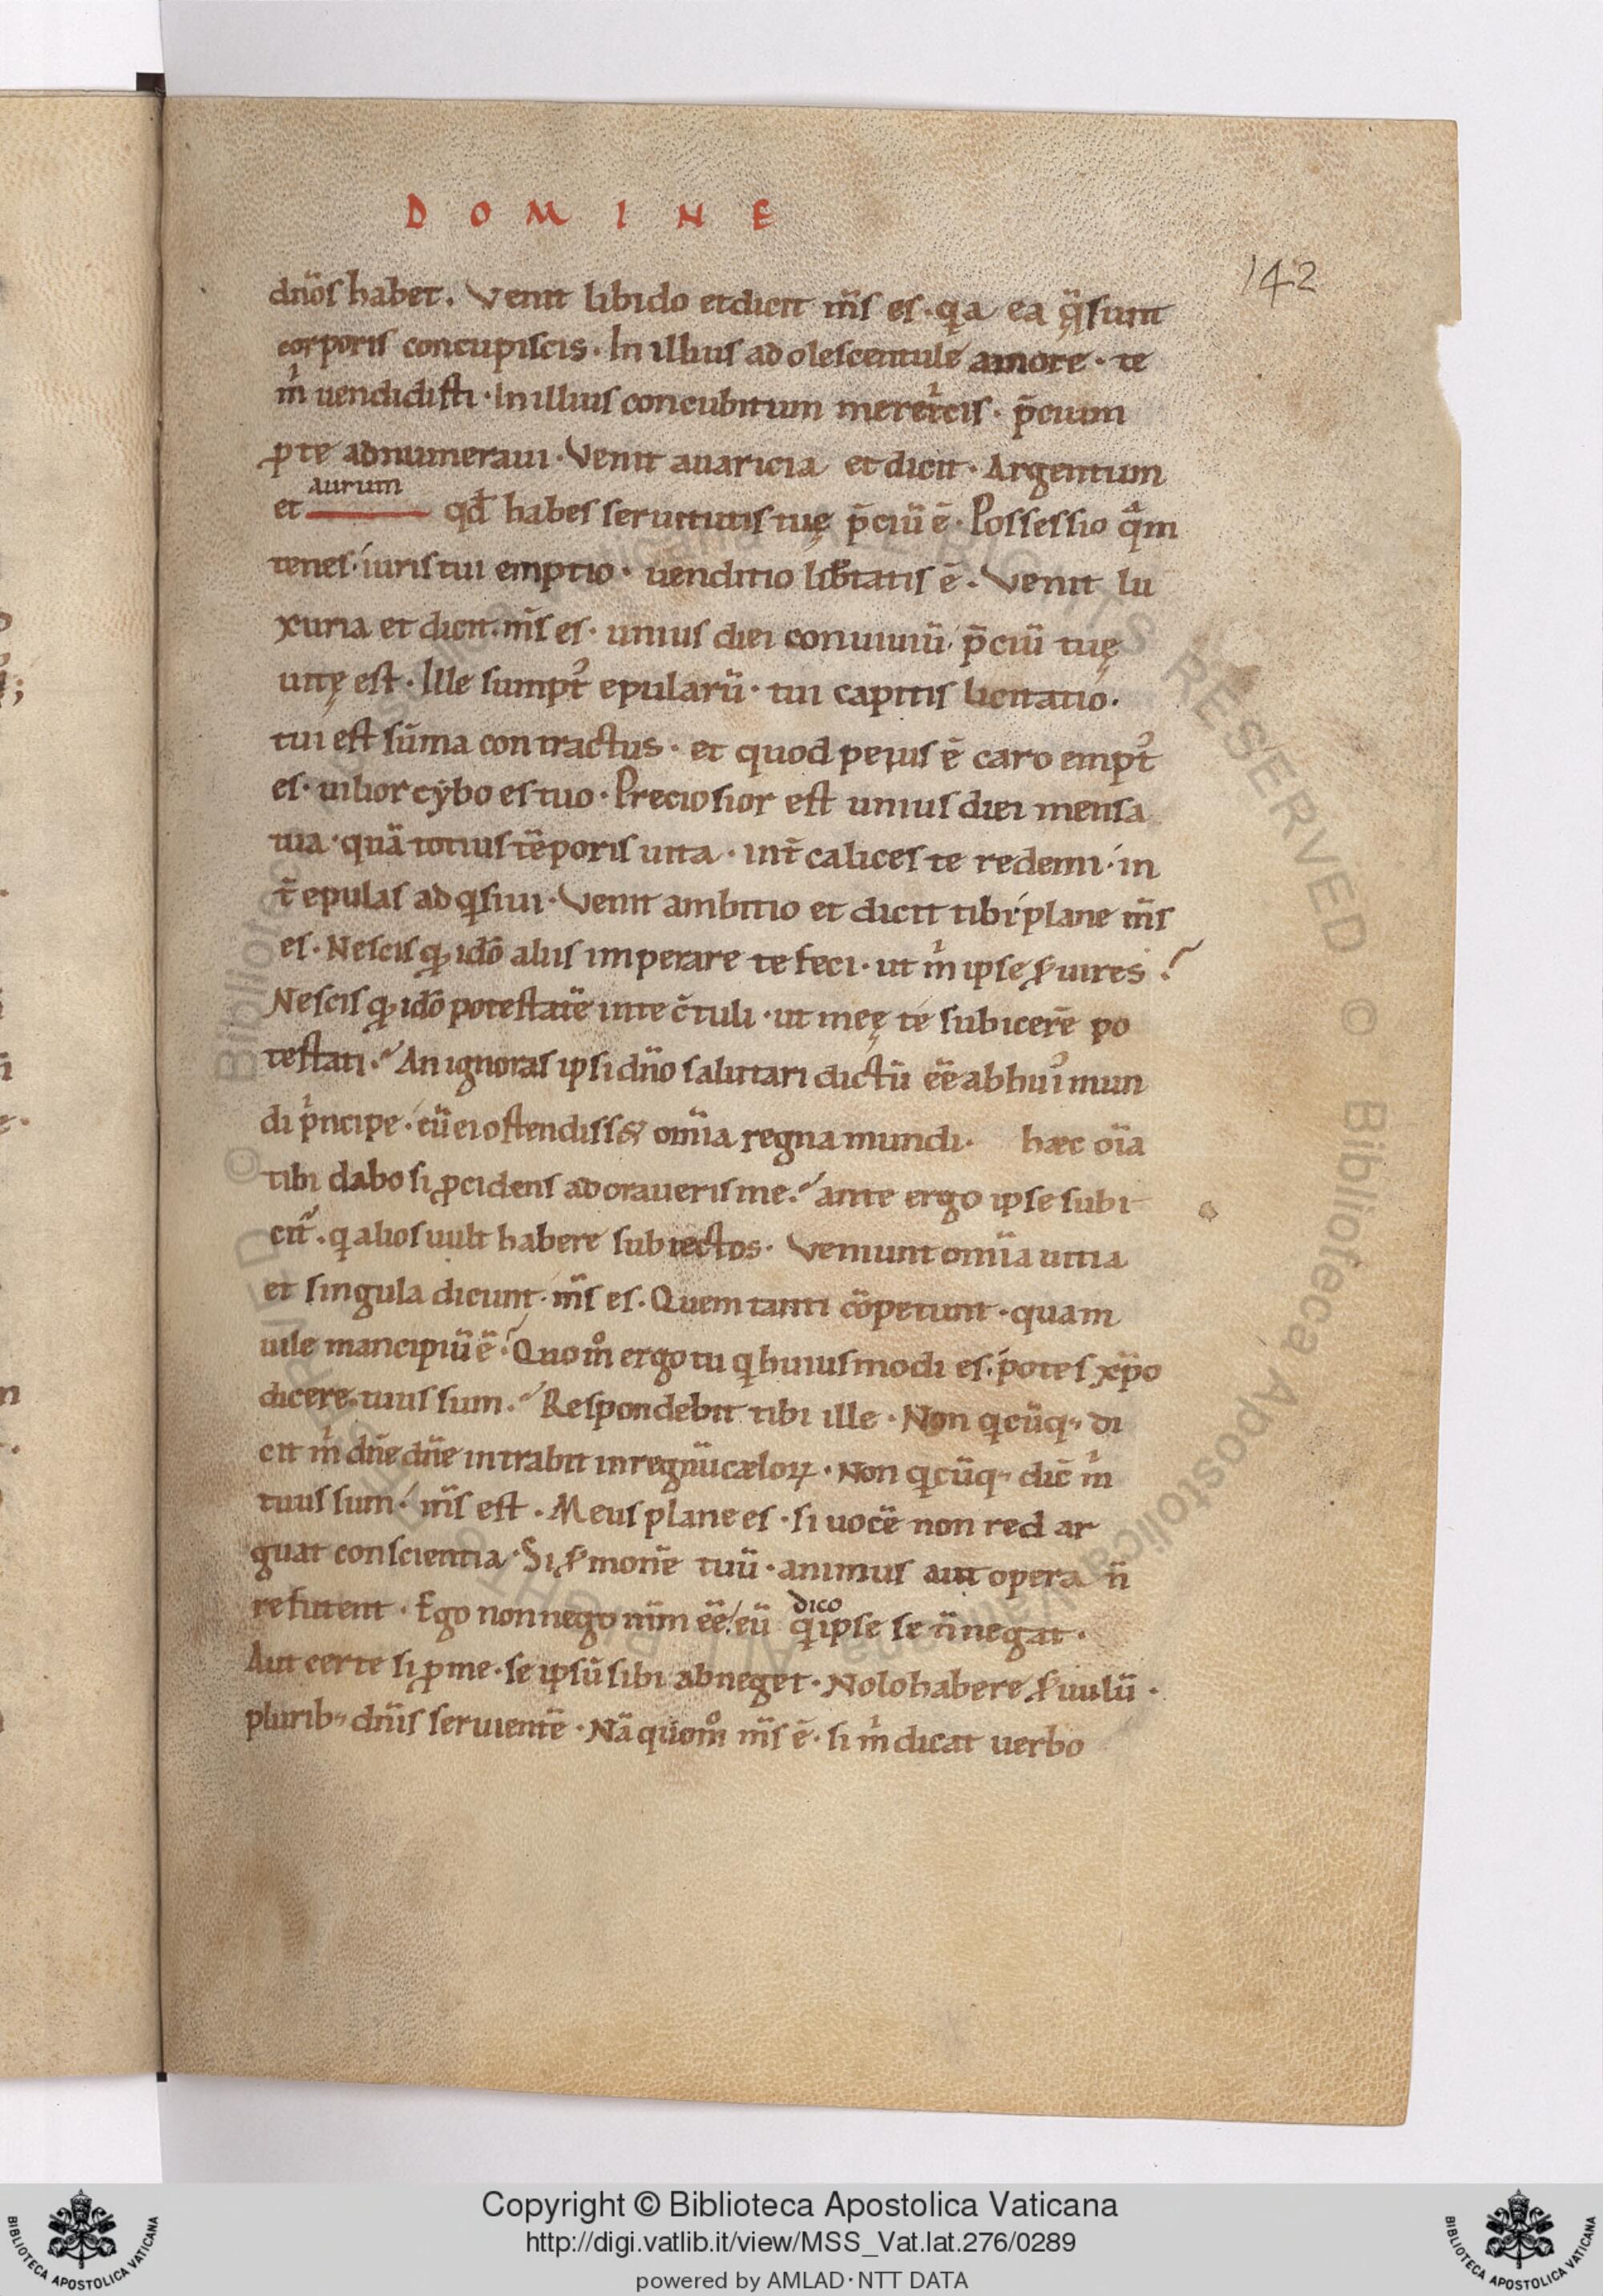 D O M I N E
142
dn̄os habet. Venit libido et dicit m̄s es. qa ea q̄ sunt
corporis concupiscis. In illius adolescentule amore. te
m̍ uendidisti. In illius concubitum mereťcis. p̄cium
ꝓ te adnumeraui. Venit auaricia et dicit. Argentum
aurum
et qđ habes seruitutis tuę p̄ciū ē. Possessio qᵃm
tenes. iuris tui emptio. uenditio lib̄tatis ē. Venit lu
xuria et dicit. m̄s es. unius diei conuiuiū p̄ciū tuę
uitę est. Ille sumptꝰ epularū. tui capitis licitatio.
tui est sūma contractus. et quod peius ē caro emptꝰ
es. uilior cybo es tuo. Preciosior est unius diei mensa
tua. quā totius tēporis uita. int̄ calices te redemi. in
t̄ epulas adqsiui. Venit ambitio et dicit tibi plane m̄s
es. Nescis ꝙ idō aliis imperare te feci. ut m̍ ipse ẜuires?
Nescis ꝙ idō potestatē in te c̄tuli. ut meę te subicerē po
testati? An ignoras ipsi dn̄o salutari dictū ēē ab huiꝰ mun
di p̍ncipe. cū ei ostendiss& om̄ia regna mundi. hæc oīa
tibi dabo si ꝓcidens adoraueris me? ante ergo ipse subi
cit᷑. q alios uult habere subiectos. Veniunt om̄ia uitia
et singula dicunt. m̄s es. Quem tanti cōpetunt. quam
uile mancipiū ē? Quom̊ ergo tu q huiusmodi es. potes xp̄o
dicere tuus sum? Respondebit tibi ille. Non qcūq; di
cit m̍ dn̄e dn̄e intrabit in regnū cæloꝝ. Non qcūq; dic̄ m̍
tuus sum. m̄s est. Meus plane es. si uocē non redar
guat conscientia. Si ẜmonē tuū. animus aut opera n̄
refutent. Ego non nego m̄m ēē. eū
dico
q ipse se n̄ negat.
Aut certe si ꝓ me. se ipsū sibi abneget. Nolo habere ẜuulū.
plurib; dn̄is seruientē. Nā quom̊ m̄s ē. si m̍ dicat uerbo
Copyright © Biblioteca Apostolica Vaticana
http://digi.vatlib.it/view/MSS_Vat.lat.276/0289
powered by AMLAD·NTT DATA
BIBLIOTECA APOSTOLICA VATICANA
BIBLIOTECA APOSTOLICA VATICANA